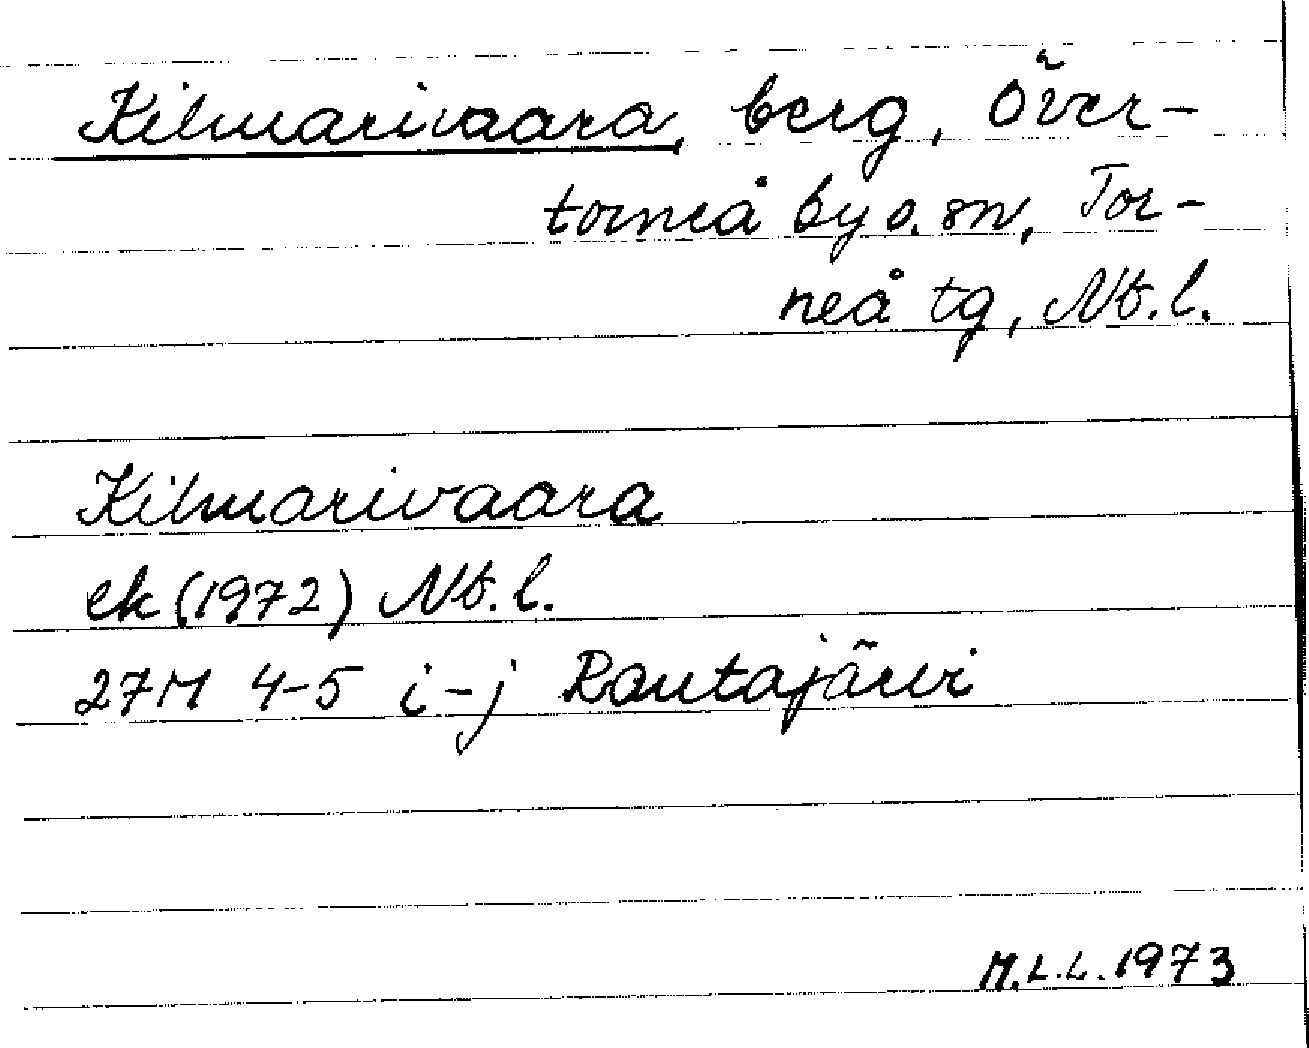 Kilmarivaara, berg, Över-
torneå by o. sn, Tor-
neå tg, Nb. l.
Kilmarivaara
ek (1972) Nb. l.
27M 4-5 i-j Rautajärvi
M.L.L. 1973